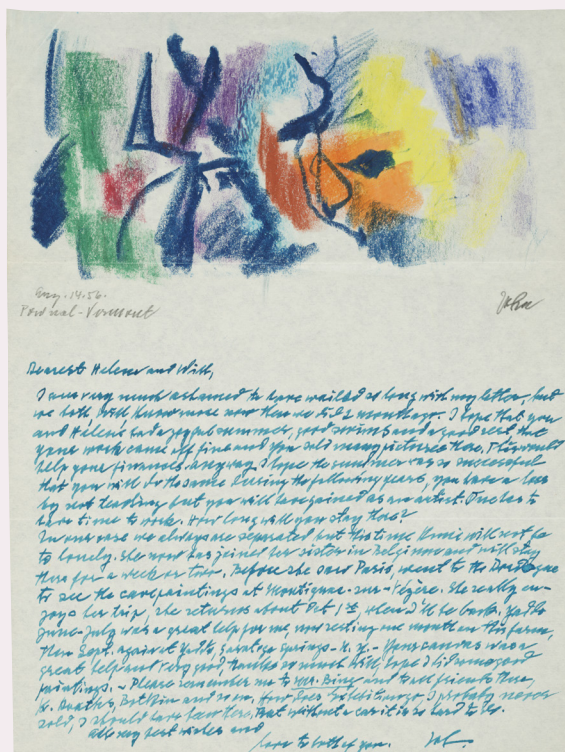 Aug. 14. 56.
Pownal - Vermont
Dearest Helene and Will,
I am very much ashamed to have waited so long with my letter, but
we both will know more now than we did 2 months ago. I hope that you
and Hélène had a joyful summer, good swims and a good rest. that
your work came off fine and you sold many pictures there, this would
help your finances. anyway I hope the summer was so successful
that you will do the same during the following years, you have a loss
by not teaching but you will have gained as an artist. One has to
have time to work. How long will you stay there?
In our case we always are separated but this time will not be
to lonely. She now has joined her sister in Belgium and will stay
there for a week or two. Before she saw Paris, went to the Dordogne
to see the cavepaintings at Montignac - sur - Vézère. She really en-
joys her trip, she returns about Oct 1st when I'll be back. Yaddo
June - July was a great help for me, now resting one month on this farm,
then Sept. again at Yaddo, Saratoga Springs - N. Y. - Your canvas was a
great help and very good, thanks so much Will, hope I did some good
paintings. - Please remember me to Mr. Bing and to all friends there,
Botkin and so on, How does go, I probably never
sold, I should have been there, but without a car it is so hard to go.
all my best wishes and
love to both of you.